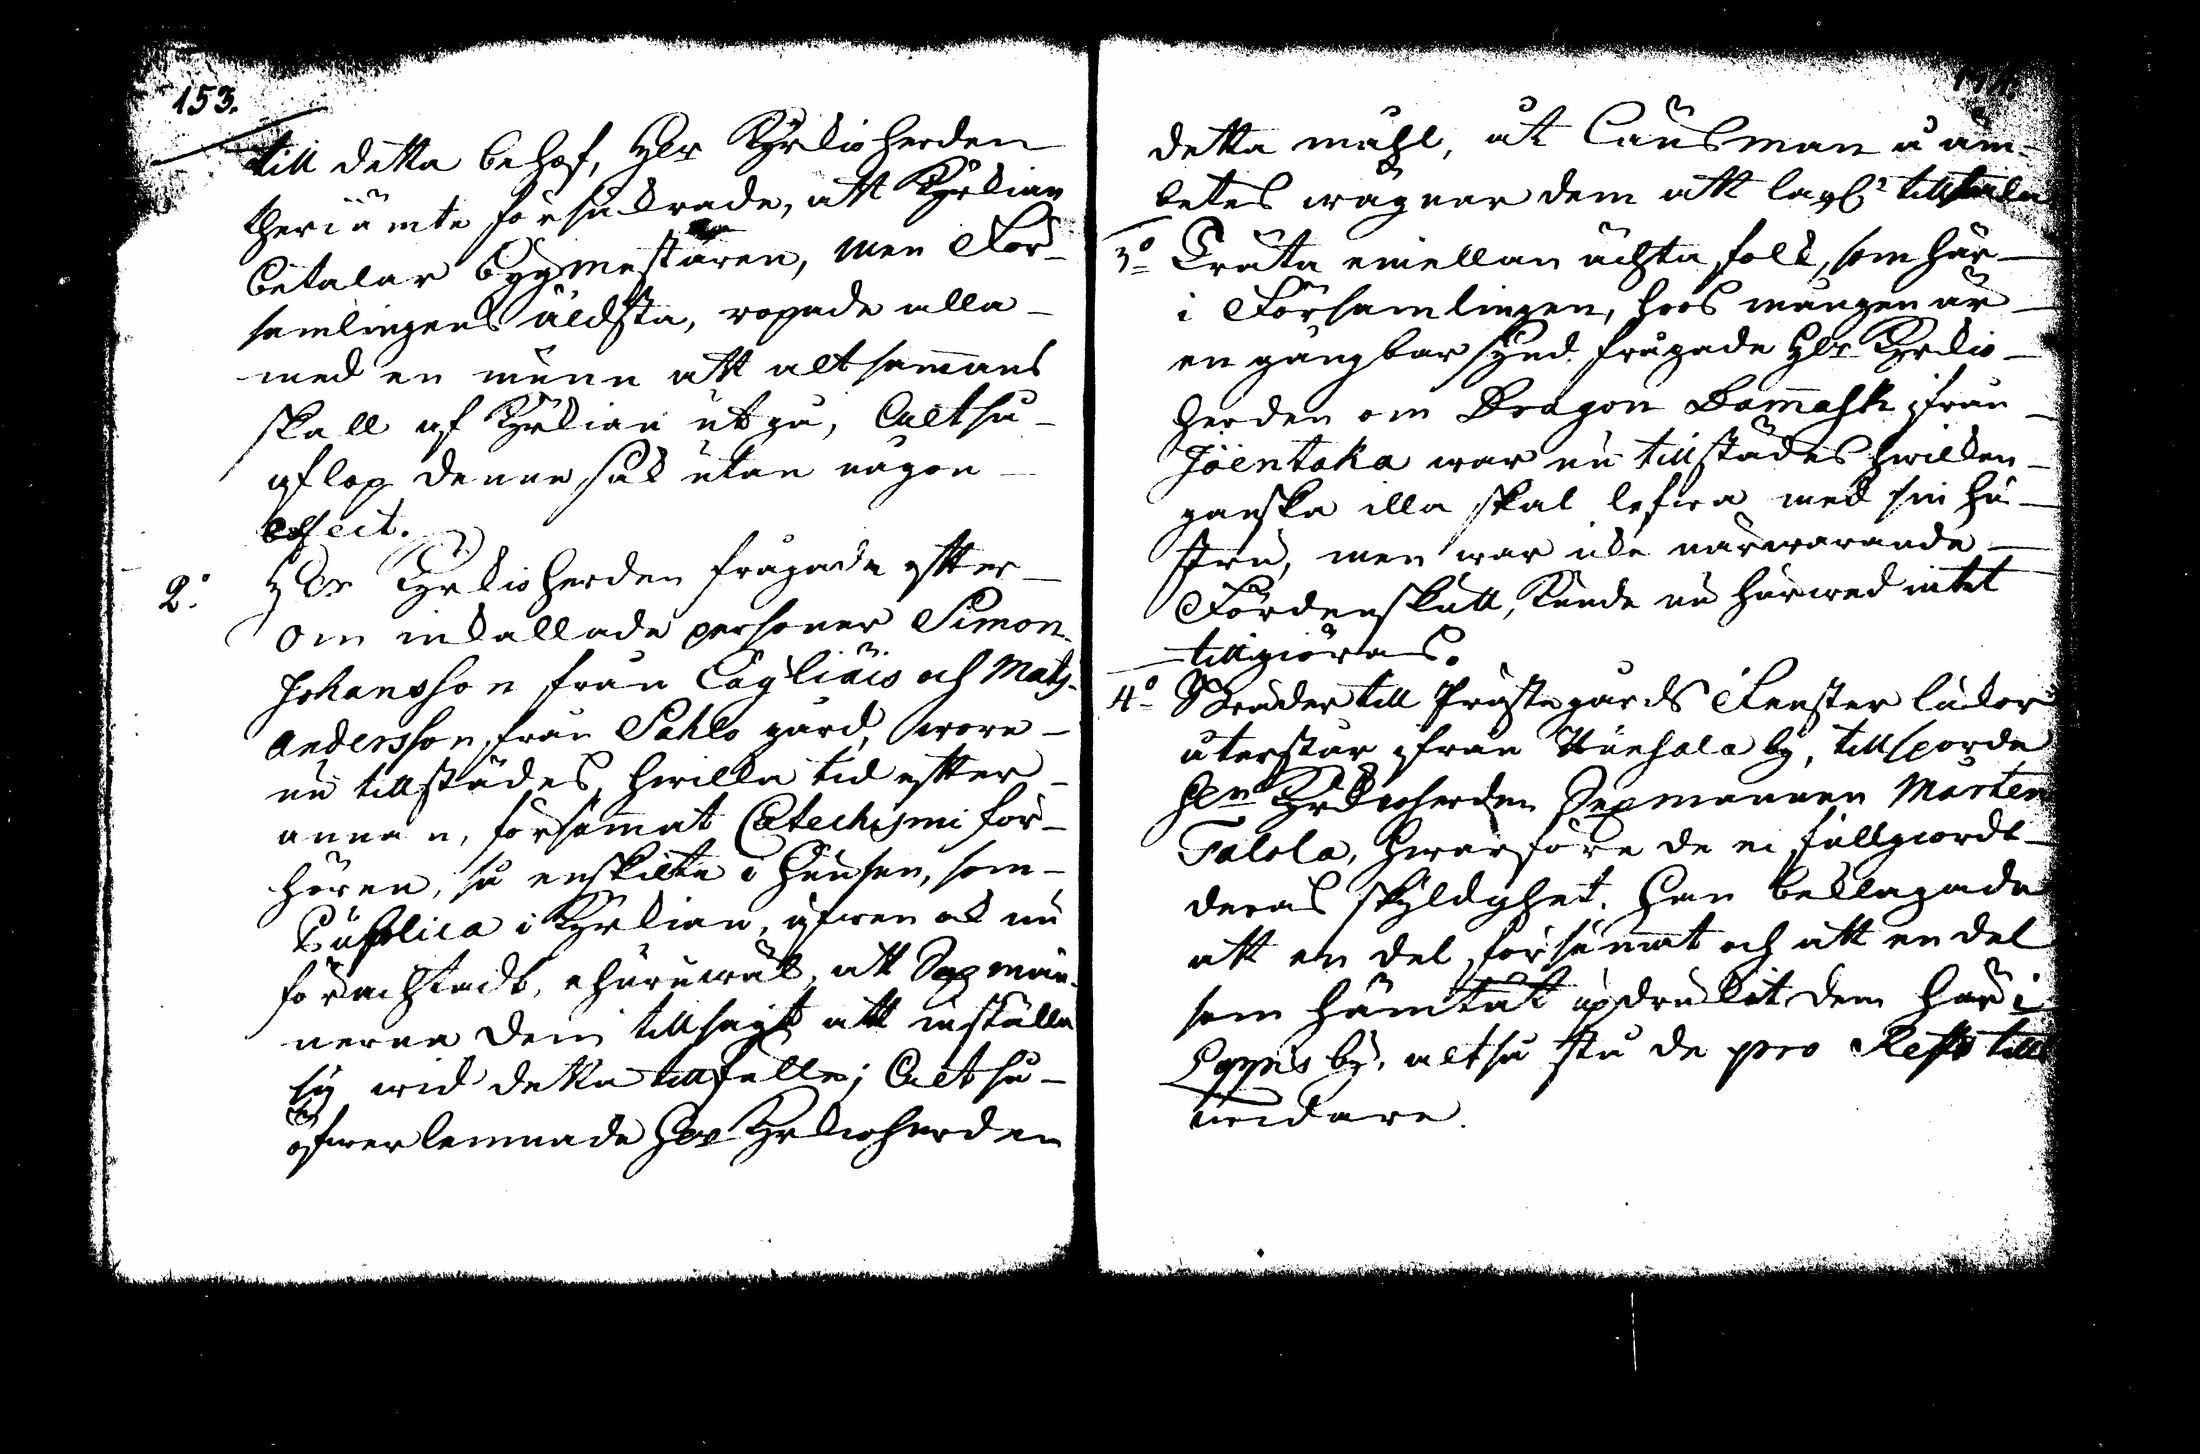 153.
till detta behof, Her Kyrkioherden
theriämte försäkrade, att Kyrkian
betalar byggmestaren, men För-
samlingens äldsta, ropade alla
med en munn att altsammans
skall af Kyrkian utgå, Altså
aflop denne sak utan någon
effect.
2.° Her Kyrkioherden frågade efter
om inkallade personer Simon
Johansson från Lagliäis och Mats
Andersson från Pahlo gård, wore
nu tillstädes, hwilka tid efter
annan, försummat Catechismi för-
hören, så enskilte i husen, som
Publica i Kyrkian, äfwen ok nu
förachtadt, ehuruwäl, att Sexmän-
nerna dem tillsagt att inställa
sig wid detta tillfälle; Altså
öfwerlemnade Her Kyrkioherden
detta måhl, åt Länsman å äm-
betes wägnar dem att lagl. tilltala
3° Träta emellan ächta folk, som här
i Församlingen, hoos mången är
en gångbar synd. frågade Her Kyrkio-
herden om Dragon Dammask från
Joentaka war nu tillstädes hwilken
ganska illa skal lefwa med sin hu-
stru, men war icke närwarande
Fördenskull, kunde nu härwed intet
tillgiöras.
4° Bräder till Prästegårds Fenster lukor
återstår från Hüehala by, tillsporde
Hen Kyrkioherden Sexmannen Mårten
Talola, hwarföre de ei fullgiordt
deras skyldighet. Han beklagade
att en del försummat och att en del
som hämtat updrukit dem här i
Loppis by, altså stå de pro Resto till
widare.